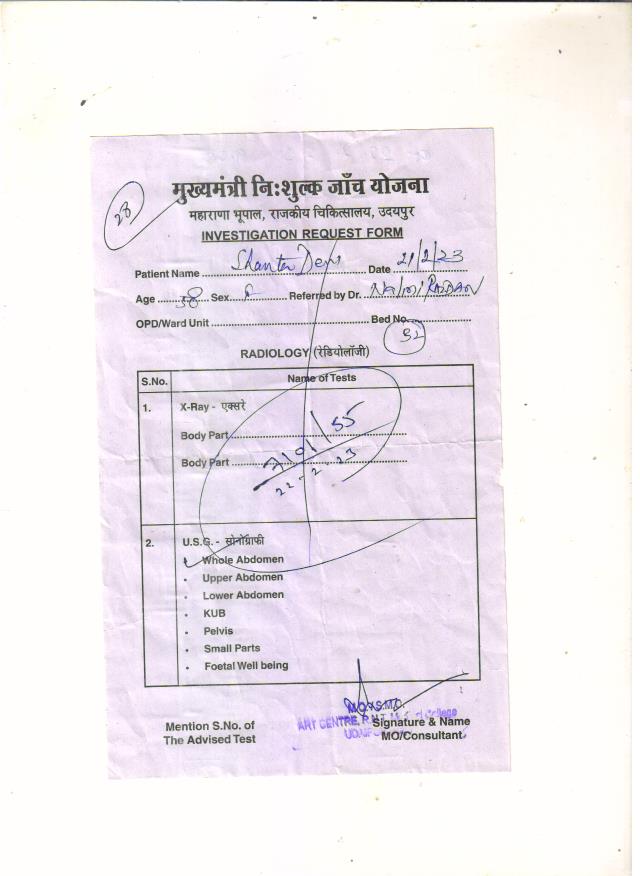 28
मुख्यमंत्री निःशुल्क जाँच योजना
महाराणा भूपाल, राजकीय चिकित्सालय, उदयपुर
INVESTIGATION REQUEST FORM
Patient Name Shanta Devi Date 21/2/23
Age 38 Sex F Referred by Dr. RAZDAN
OPD/Ward Unit Bed No.
32
RADIOLOGY (रेडियोलॉजी)
S.No. Name of Tests
1. X-Ray - एक्सरे
Body Part
Body Part
22-2-23
2. U.S.G. - सोनोग्राफी
Whole Abdomen
Upper Abdomen
Lower Abdomen
KUB
Pelvis
Small Parts
Foetal Well being
M.O./S.M.O.
ART CENTRE, R.N.T. College
Mention S.No. of Signature & Name
The Advised Test MO/Consultant